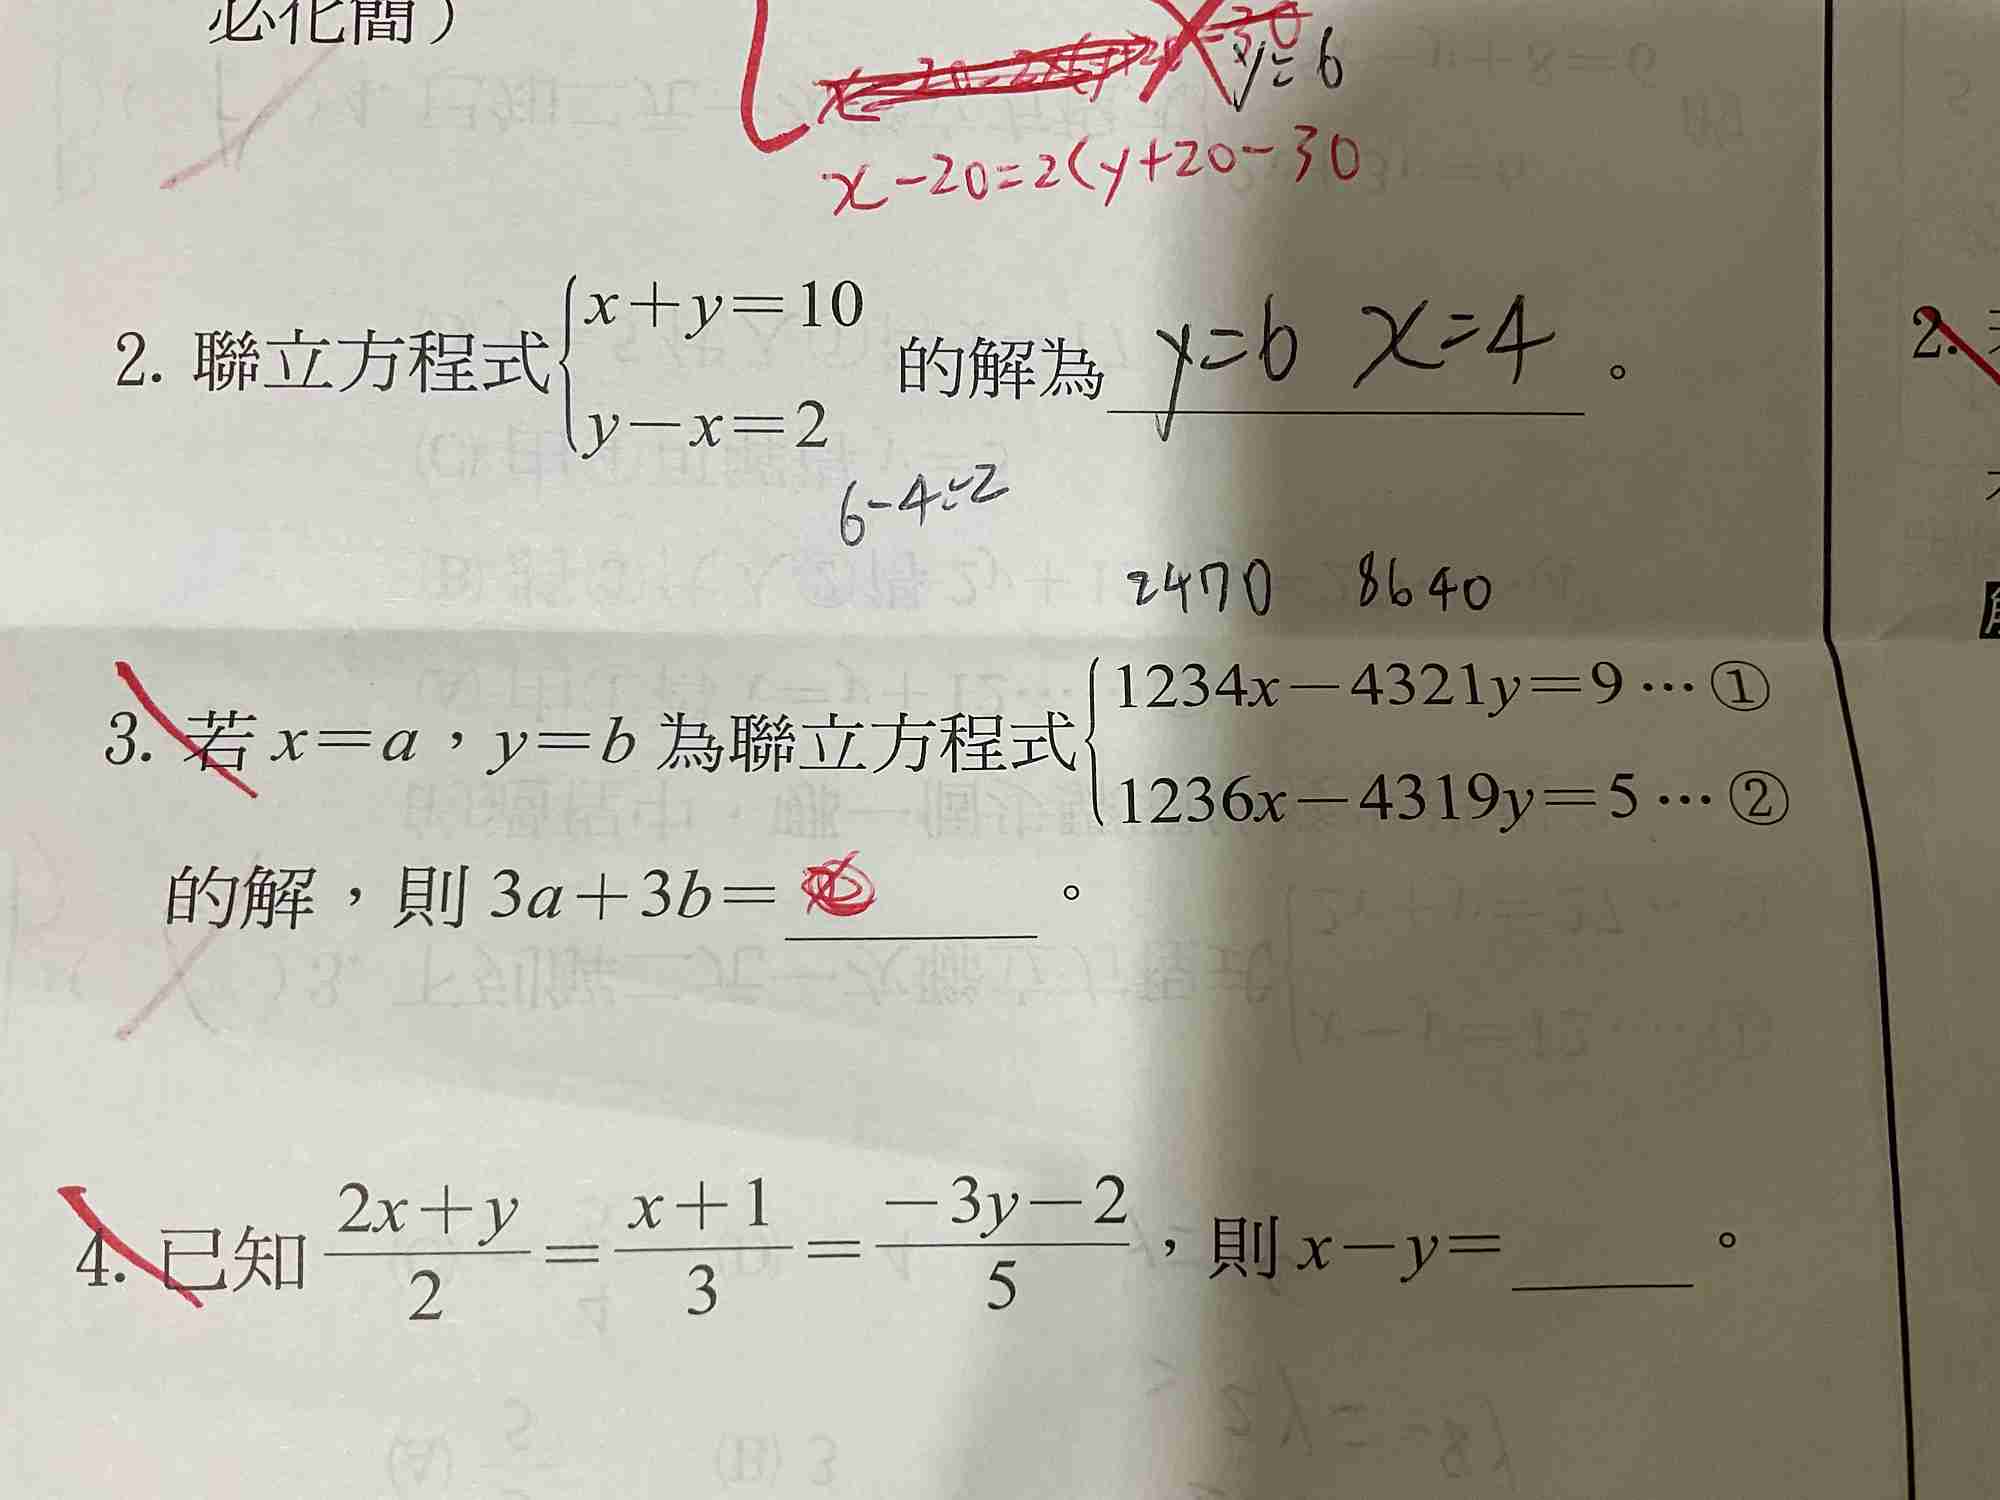 必化簡）
y=6
x-20=2(y+20-30
2. 聯立方程式{x+y=10 y-x=2 的解為 y=6 x=4。
6-4=2
2470 8640
3. 若 x=a，y=b 為聯立方程式{1234x-4321y=9…① 1236x-4319y=5…②
的解，則 3a+3b=＿＿＿。
4. 已知 (2x+y)/2=(x+1)/3=(-3y-2)/5，則 x-y=＿＿＿。
2.